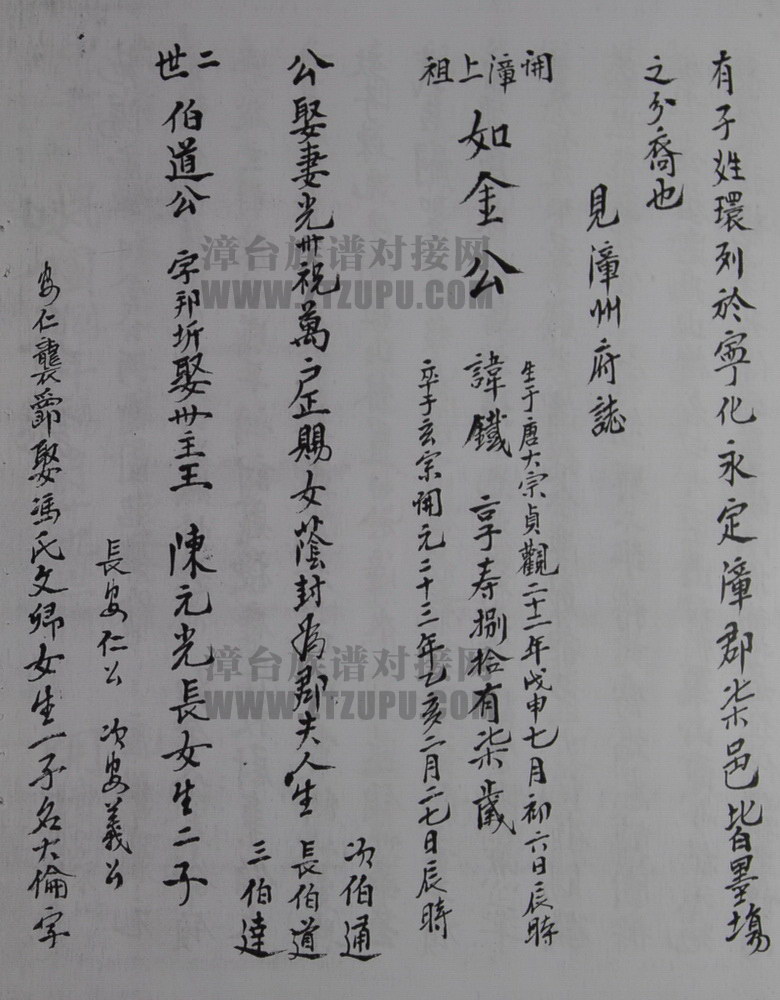 有子姓環列於寧化永定漳郡柒邑皆墨場
之分裔也
見漳州府誌
開漳上祖
如金公
諱鐵 享壽捌拾有柒歲
生于唐大宗貞觀二十二年戊申七月初六日辰時
卒于玄宗開元二十三年乙亥二月二七日辰時
公娶妻光卅祝萬户正賜女蔭封為郡夫人生
長伯道
次伯通
三伯達
二世
伯道公 字邦圻娶卅主王 陳元光長女生二子
長安仁公 次安義公
安仁襲爵娶馮氏文卿女生一子名大倫字
漳台族谱对接网
WWW.ZTZUPU.COM
漳台族谱对接网
WWW.ZTZUPU.COM